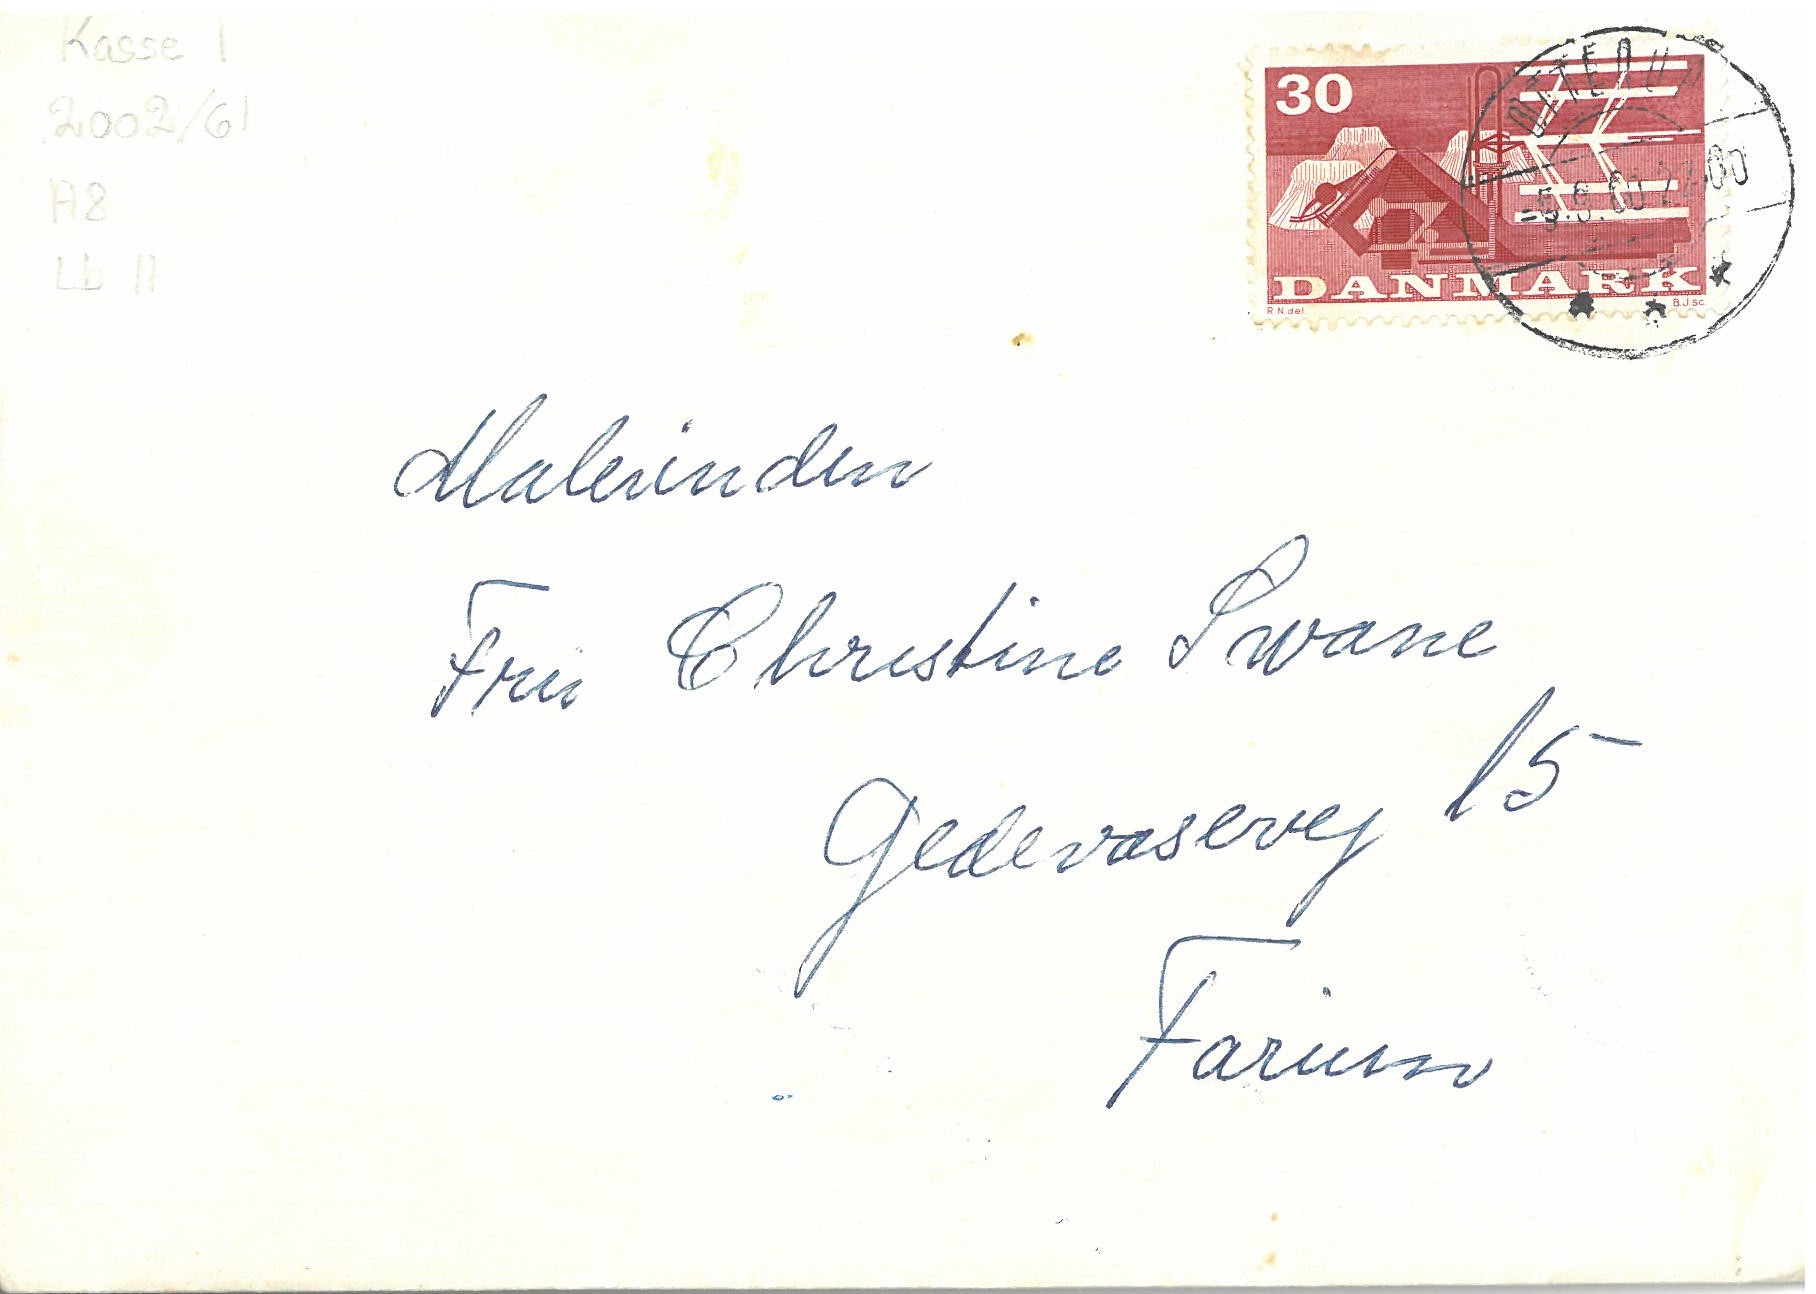 Kasse 1
2002/61
A8
Lb 11
30
DANMARK
R.N.del.
B.J.sc.
OTTERUP
-5.9.60 22.00
Malerinden
Fru Christine Swane
Gedevasevej 15
Farum